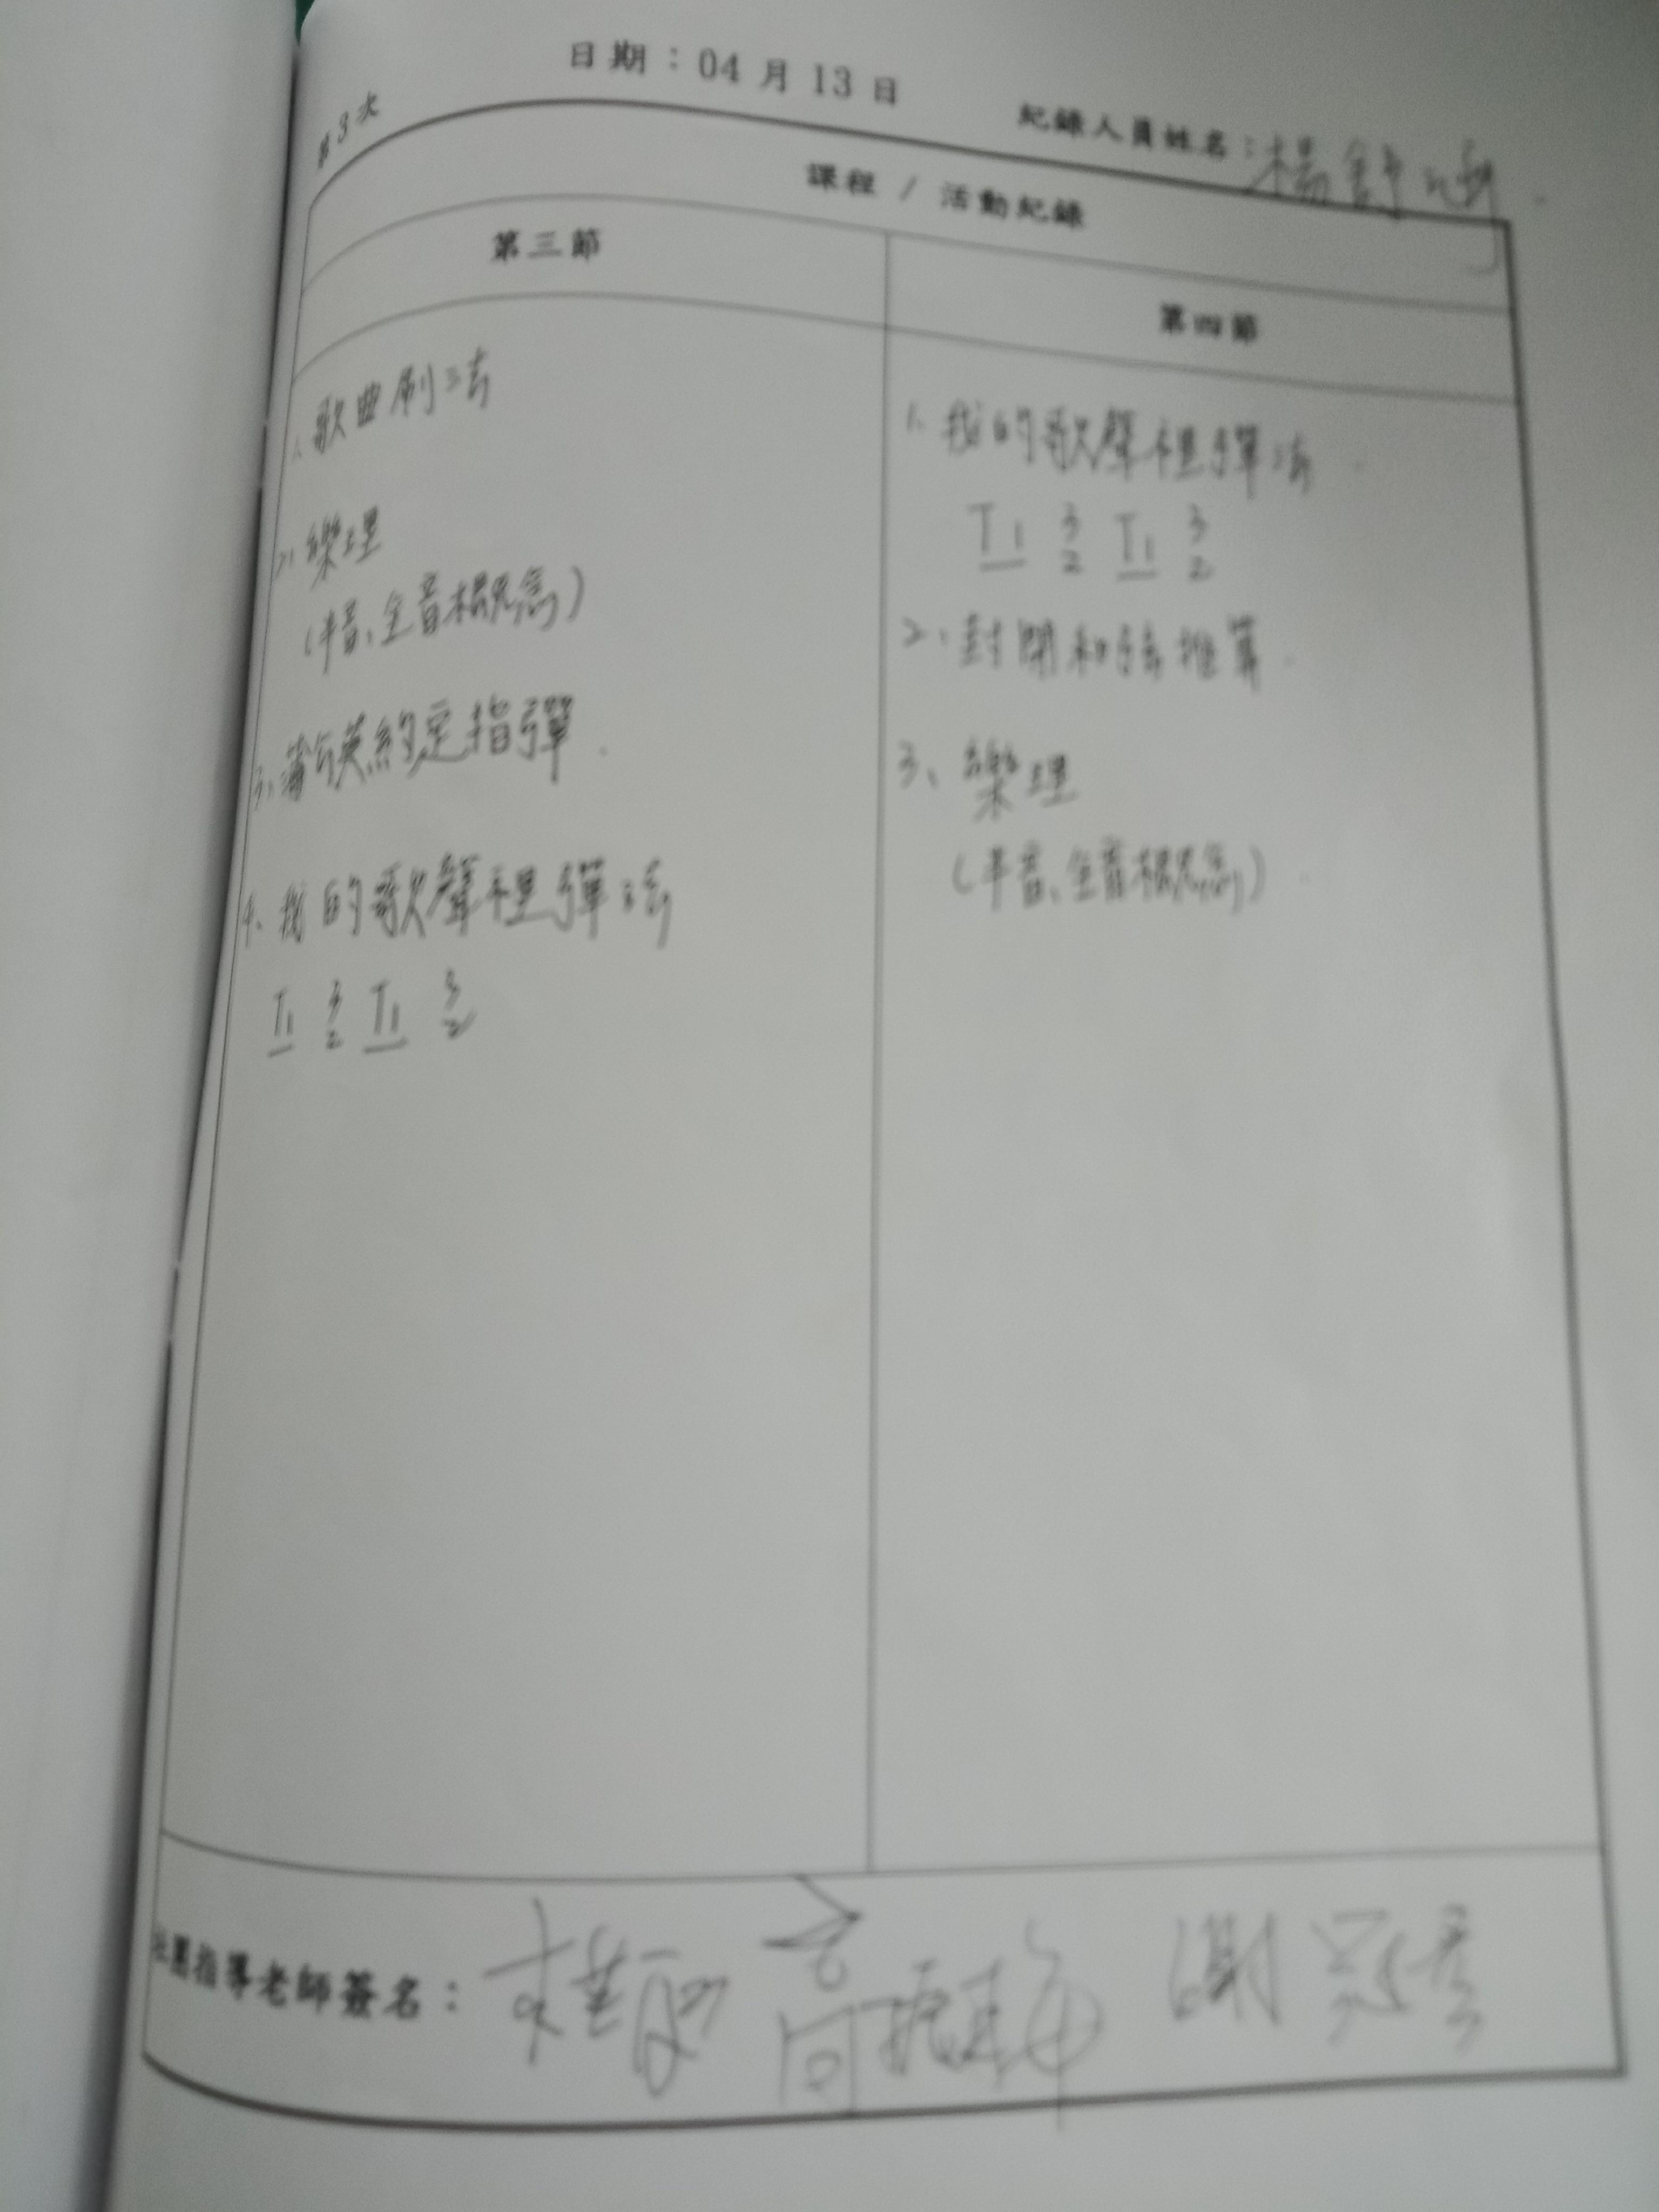 日期：04 月 13 日
第 3 次
紀錄人員姓名：楊舒涵
課程 / 活動紀錄
第三節
1. 歌曲刷法
2. 樂理
(半音、全音概念)
3. 蒲公英約定指彈
4. 我的歌聲裡彈法
T1 3/2 T1 3/2
第四節
1. 我的歌聲裡彈法
T1 3/2 T1 3/2
2、封閉和弦推算
3、樂理
(半音、全音概念)
社團指導老師簽名：